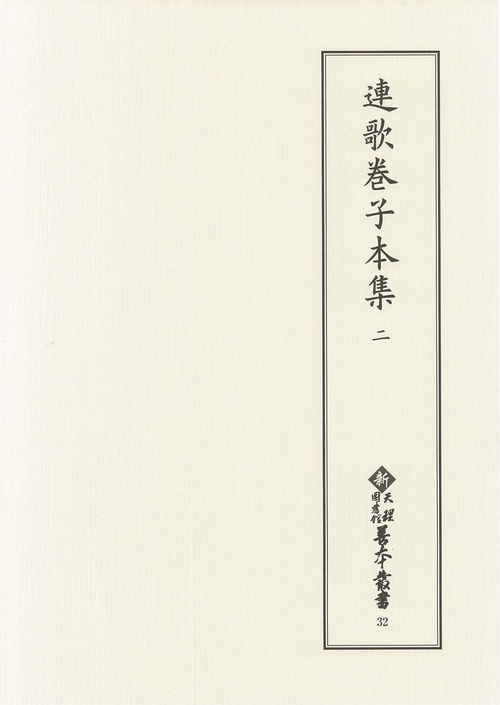 連歌巻子本集 二
新 天理
図書館
善本叢書
32